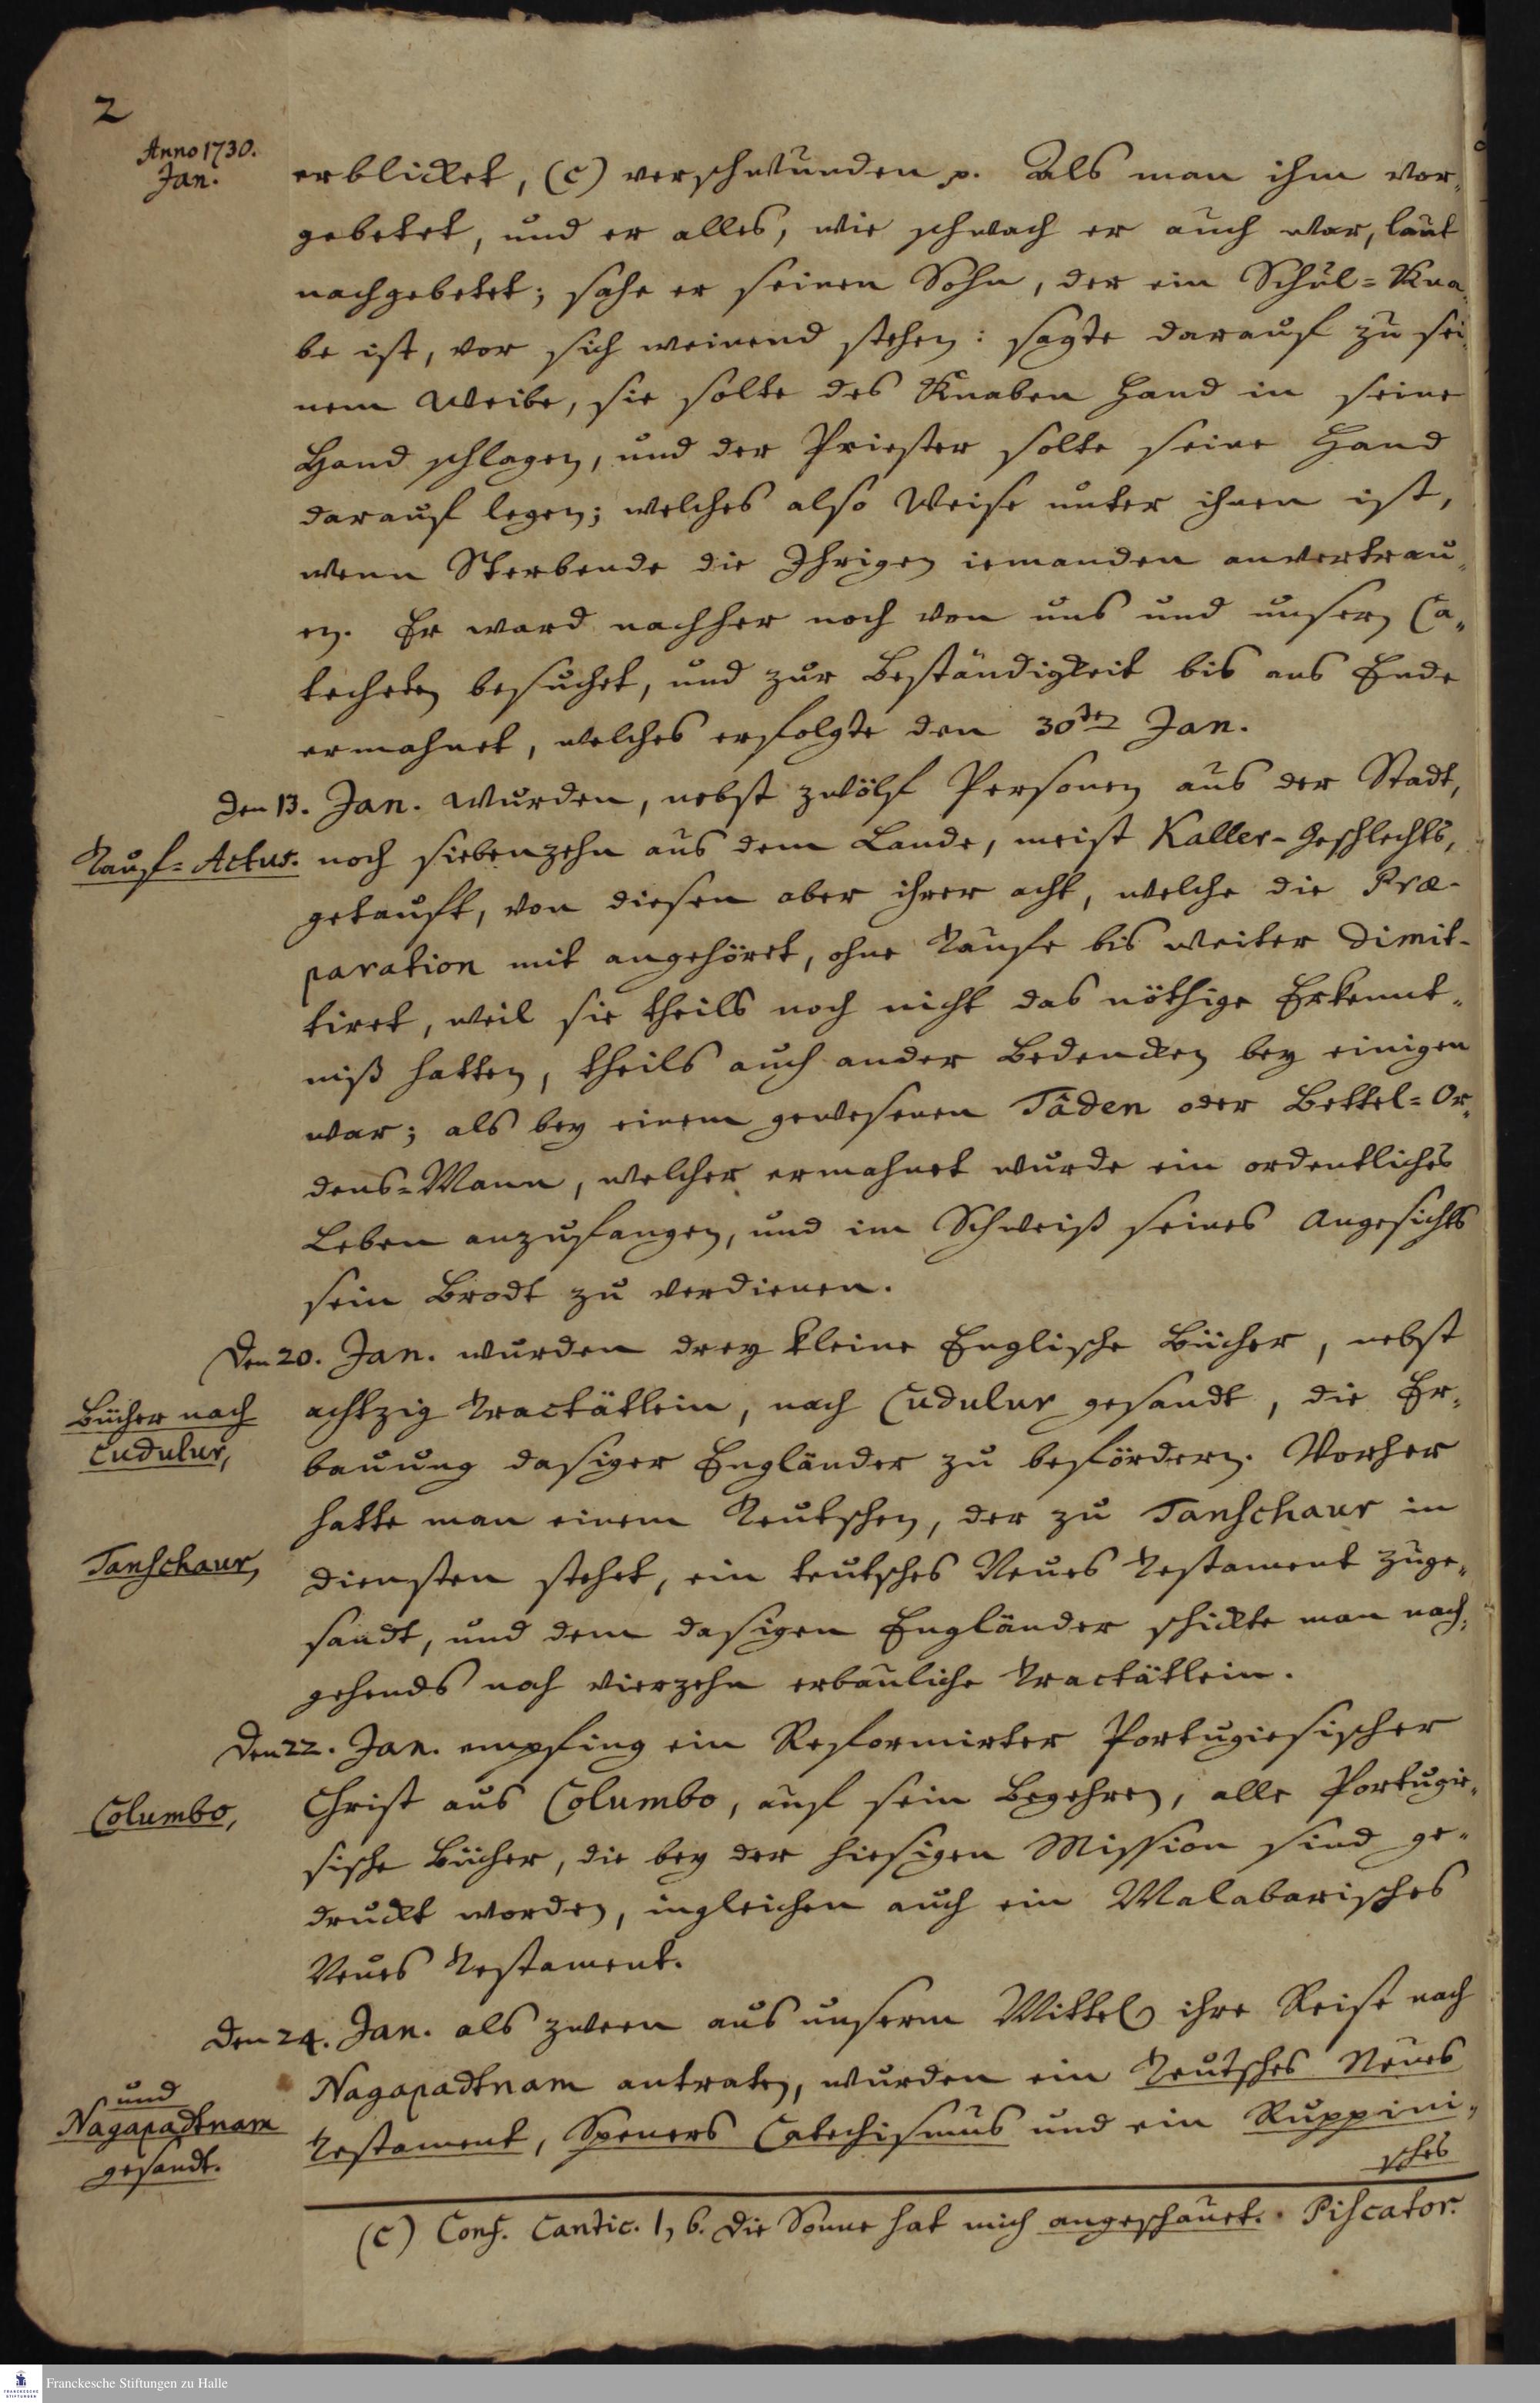 2
Anno 1730.
Jan.
erblicket, (c) verschwunden p. Als man ihm vor„
gebetet, und er alles, wie schwach er auch war, laut
nachgebetet; sahe er seinen Sohn, der ein Schul=Kna„
be ist, vor sich weinend stehen: sagte darauf zu sei„
nem Weibe, sie solte des Knaben Hand in seine
Hand schlagen, und der Priester solte seine Hand
darauf legen; welches also Weise unter ihnen ist,
wenn Sterbende die Ihrigen iemanden anvertrau„
en. Er ward nachher noch von uns und unsern Ca„
techeten besuchet, und zur Beständigkeit bis ans Ende
ermahnet, welches erfolgte den 30ten Jan.
Den 13. Jan. wurden, nebst zwölf Personen aus der Stadt,
Tauf=Actus. noch siebenzehn aus dem Lande, meist Kaller-Geschlechts,
getauft, von diesen aber ihrer acht, welche die Præ-
paration mit angehöret, ohne Taufe bis weiter dimit-
tiret, weil sie theils noch nicht das nöthige Erkennt„
niß hatten, theils auch ander Bedencken bey einigen
war; als bey einem gewesenen Tâden oder Bettel=Or„
dens=Mann, welcher ermahnet wurde ein ordentliches
Leben anzufangen, und im Schweiß seines Angesichts
sein Brodt zu verdienen.
Den 20. Jan. wurden drey kleine Englische Bücher, nebst
Bücher nach
Cudulur,
achtzig Tractätlein, nach Cudulur gesandt, die Er„
bauung dasiger Engländer zu befördern. Vorher
hatte man einem Teutschen, der zu Tanschaur in
Tanschaur,
Diensten stehet, ein teutsches Neues Testament zuge„
sandt, und dem dasigen Engländer schickte man nach„
gehends noch vierzehn erbauliche Tractätlein.
Den 22. Jan. empfing ein Reformirter Portugiesischer
Columbo,
Christ aus Columbo, auf sein Begehren, alle Portugie„
sische Bücher, die bey der hiesigen Mission sind ge„
druckt worden, ingleichen auch ein Malabarisches
Neues Testament.
Den 24. Jan. als zween aus unserm Mittel ihre Reise nach
und
Nagapadtnam
gesandt.
Nagapadtnam antraten, wurden ein Teutsches Neues
Testament, Speners Catechismus und ein Ruppini„
sches
(c) Conf. Cantic. 1, 6. Die Sonne hat mich angeschauet. Piscator.
Franckesche Stiftungen zu Halle
FRANCKESCHE STIFTUNGEN